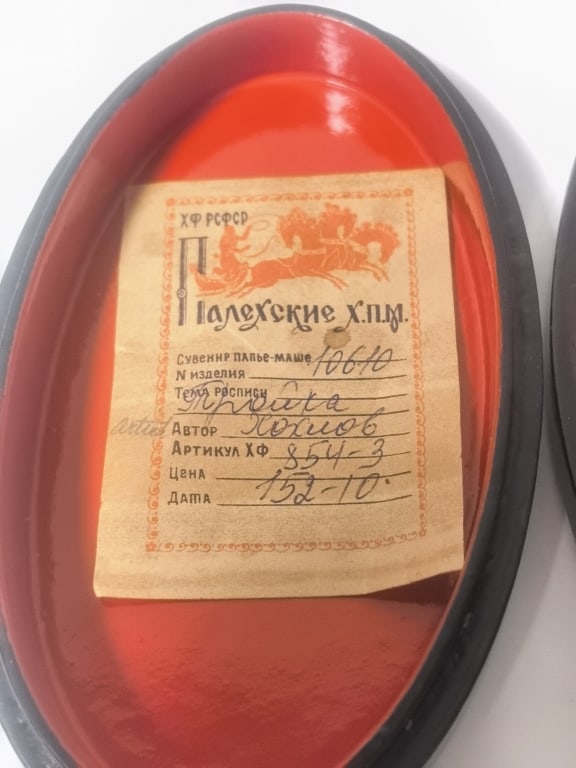 ХФ РСФСР
Палехские Х.П.М.
Сувенир папье-маше
N изделия 10610
Тема росписи Тройка
artist
Автор Хохлов
Артикул ХФ 854-3
Цена 152-10
Дата